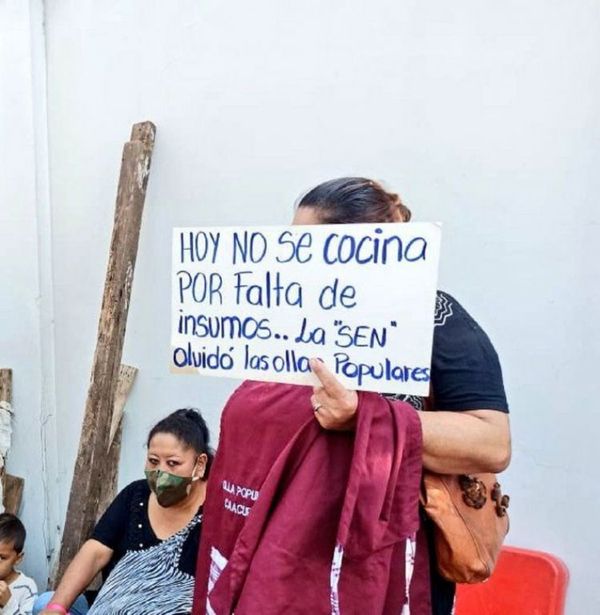 HOY NO Se cocina
POR Falta de
insumos.. La "SEN"
olvidó las ollas Populares
LLA POPU
CAACU